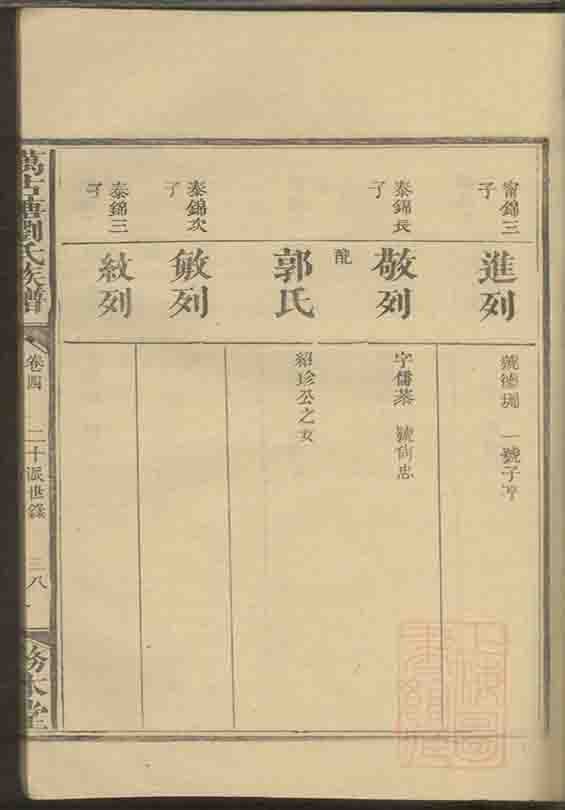 甯錦三子
進列
號德珊 一號子亭
泰錦長子
敬列
字儒棻 號尙忠
配
郭氏
紹珍公之女
泰錦次子
敏列
泰錦三子
紋列
萬古塘劉氏族譜
卷四 二十派世錄 三八
務本堂